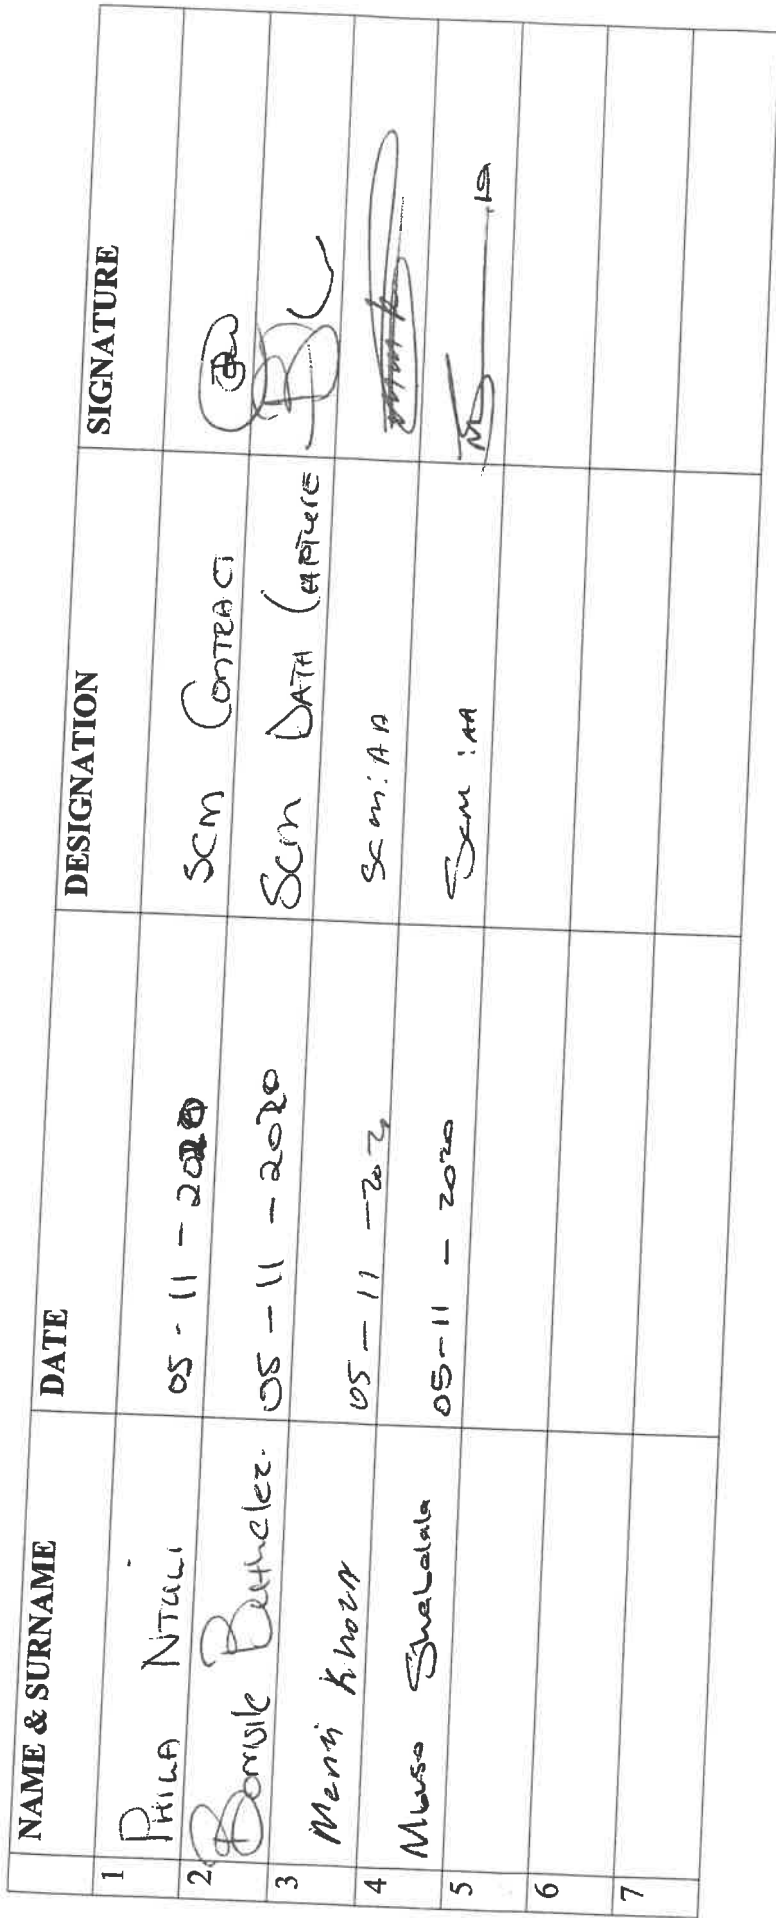 NAME & SURNAME DATE DESIGNATION SIGNATURE
1 PHILA NTULI 05-11-2020 SCM CONTRACT
2 Bonisile Buthelezi 05-11-2020 SCM DATA CAPTURE
3 Menzi Khoza 05-11-202 SCM:AA
4 Mluso Shabalala 05-11-2020 SCM:AA
5
6
7